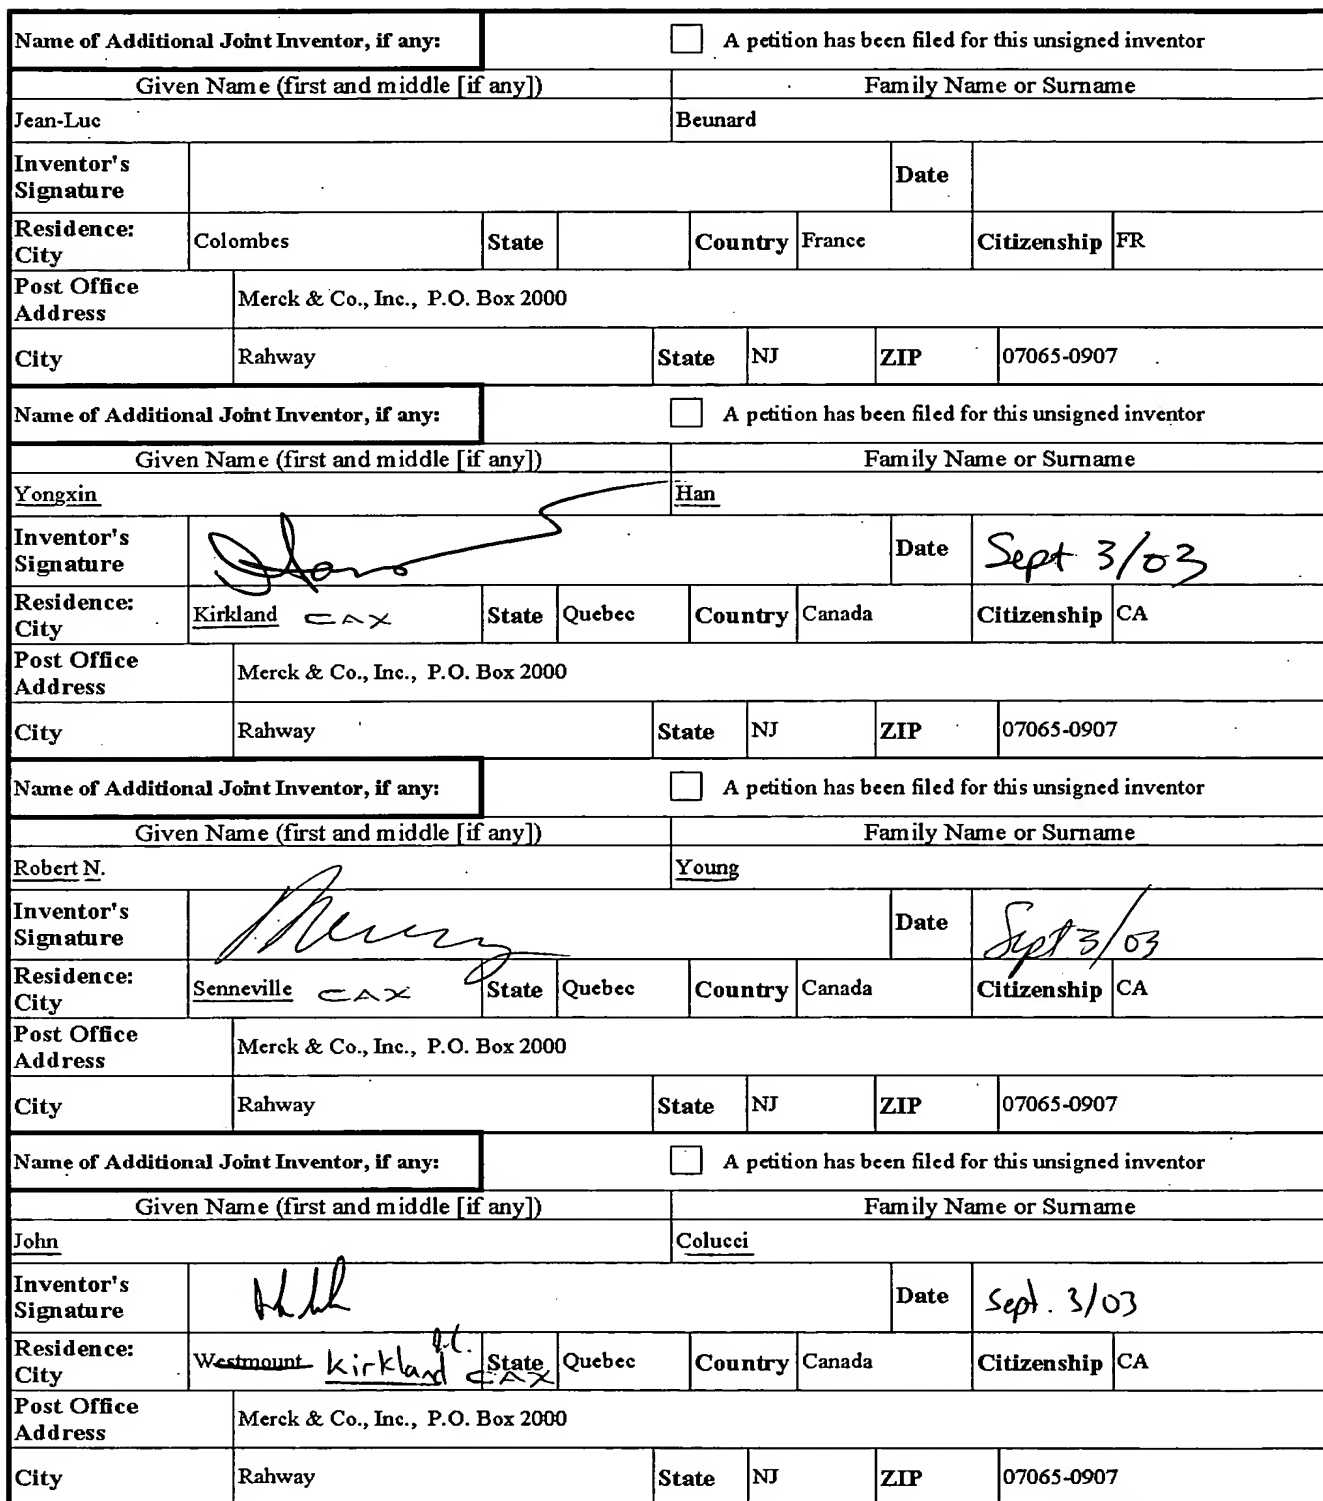 Name of Additional Joint Inventor, if any: A petition has been filed for this unsigned inventor
Given Name (first and middle [if any]) Family Name or Surname
Jean-Luc Beunard
Inventor's Signature Date
Residence: City Colombes State Country France Citizenship FR
Post Office Address Merck & Co., Inc., P.O. Box 2000
City Rahway State NJ ZIP 07065-0907
Name of Additional Joint Inventor, if any: A petition has been filed for this unsigned inventor
Given Name (first and middle [if any]) Family Name or Surname
Yongxin Han
Inventor's Signature Date Sept 3/03
Residence: City Kirkland CAX State Quebec Country Canada Citizenship CA
Post Office Address Merck & Co., Inc., P.O. Box 2000
City Rahway State NJ ZIP 07065-0907
Name of Additional Joint Inventor, if any: A petition has been filed for this unsigned inventor
Given Name (first and middle [if any]) Family Name or Surname
Robert N. Young
Inventor's Signature Date Sept 3/03
Residence: City Senneville CAX State Quebec Country Canada Citizenship CA
Post Office Address Merck & Co., Inc., P.O. Box 2000
City Rahway State NJ ZIP 07065-0907
Name of Additional Joint Inventor, if any: A petition has been filed for this unsigned inventor
Given Name (first and middle [if any]) Family Name or Surname
John Colucci
Inventor's Signature Date Sept. 3/03
Residence: City Westmount Kirkland CAX State Quebec Country Canada Citizenship CA
Post Office Address Merck & Co., Inc., P.O. Box 2000
City Rahway State NJ ZIP 07065-0907